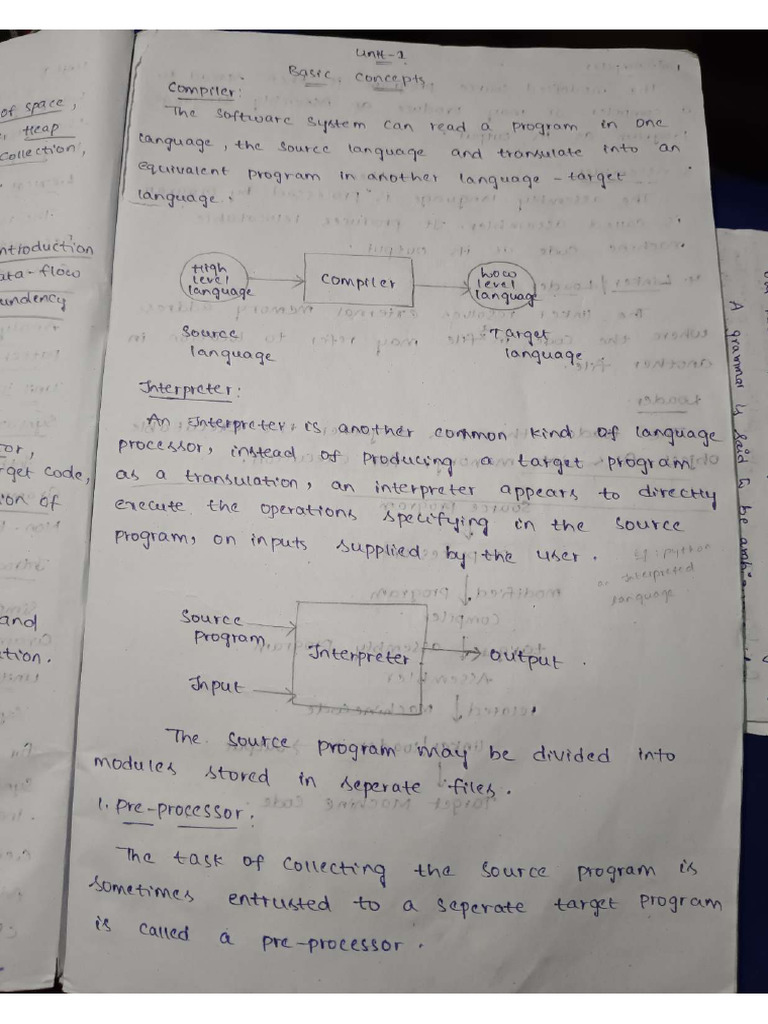 Unit-1
1
Basic concepts
Compiler:
The software system can read a program in one
language, the source language and translate into an
equivalent program in another language - target
language.
High level language
Compiler
Low level language
Source language
Target language
Interpreter:
An Interpreter is another common kind of language
processor, instead of producing a target program
as a translation, an interpreter appears to directly
execute the operations specifying in the source
program, on inputs supplied by the user.
python
an interpreted
language
Source program
Interpreter
output.
Input
The source program may be divided into
modules stored in seperate files.
1. Pre-processor:
The task of collecting the source program is
sometimes entrusted to a seperate target program
is called a pre-processor.
of space,
Heap
collection,
introduction
data-flow
target code,
ion of
and
ation.
A grammar is said to be